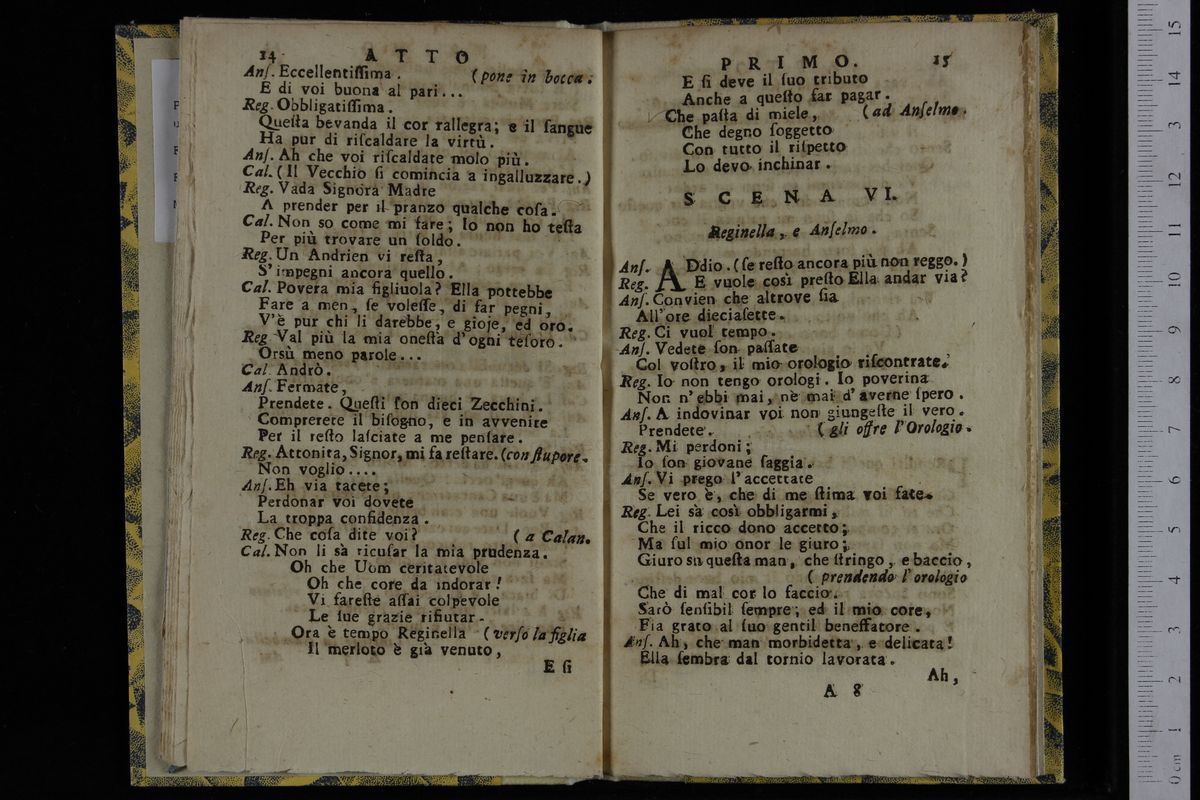 14 ATTO
Anſ. Eccellentiſſima. (pone in bocca.
E di voi buona al pari...
Reg. Obbligatiſſima.
Queſta bevanda il cor rallegra; e il ſangue
Ha pur di riſcaldare la virtù.
Anſ. Ah che voi riſcaldate molo più.
Cal. (Il Vecchio ſi comincia a ingalluzzare.)
Reg. Vada Signora Madre
A prender per il pranzo qualche coſa.
Cal. Non so come mi fare; Io non ho teſta
Per più trovare un ſoldo.
Reg. Un Andrien vi reſta,
S'impegni ancora quello.
Cal. Povera mia figliuola? Ella pottebbe
Fare a men, ſe voleſſe, di far pegni,
V'è pur chi li darebbe, e gioje, ed oro.
Reg Val più la mia oneſtà d'ogni teſoro.
Orsù meno parole...
Cal Andrò.
Anſ. Fermate,
Prendete. Queſti ſon dieci Zecchini.
Comprerete il biſogno, e in avvenire
Per il reſto laſciate a me penſare.
Reg. Attonita, Signor, mi fa reſtare. (con ſtupore.
Non voglio....
Anſ. Eh via tacete;
Perdonar voi dovete
La troppa confidenza.
Reg. Che coſa dite voi? (a Calan.
Cal. Non li sà ricuſar la mia prudenza.
Oh che Uom ceritatevole
Oh che core da indorar!
Vi fareſte aſſai colpevole
Le ſue grazie rifiutar-
Ora è tempo Reginella (verſo la figlia
Il merloto è già venuto,
E ſi
PRIMO. 15
E ſi deve il ſuo tributo
Anche a queſto far pagar.
Che paſta di miele, (ad Anſelmo.
Che degno ſoggetto
Con tutto il riſpetto
Lo devo inchinar.
SCENA VI.
Reginella, e Anſelmo.
Anſ. ADdio. (ſe reſto ancora più non reggo.)
Reg. E vuole così preſto Ella andar via?
Anſ. Convien che altrove ſia
All'ore dieciaſette.
Reg. Ci vuol tempo.
Anſ. Vedete ſon paſſate
Col voſtro, il mio orologio riſcontrate.
Reg. Io non tengo orologi. Io poverina
Non n'ebbi mai, nè mai d'averne ſpero.
Anſ. A indovinar voi non giungeſte il vero.
Prendete. (gli offre l'Orologio.
Reg. Mi perdoni;
Io ſon giovane ſaggia.
Anſ. Vi prego l'accettate
Se vero è, che di me ſtima voi fate.
Reg. Lei sà così obbligarmi,
Che il ricco dono accetto;
Ma ſul mio onor le giuro;
Giuro su queſta man, che ſtringo, e baccio,
(prendendo l'orologio
Che di mal cor lo faccio.
Sarò ſenſibil ſempre; ed il mio core,
Fia grato al ſuo gentil beneffatore.
Anſ. Ah, che man morbidetta, e delicata!
Ella ſembra dal tornio lavorata.
Ah,
A 8